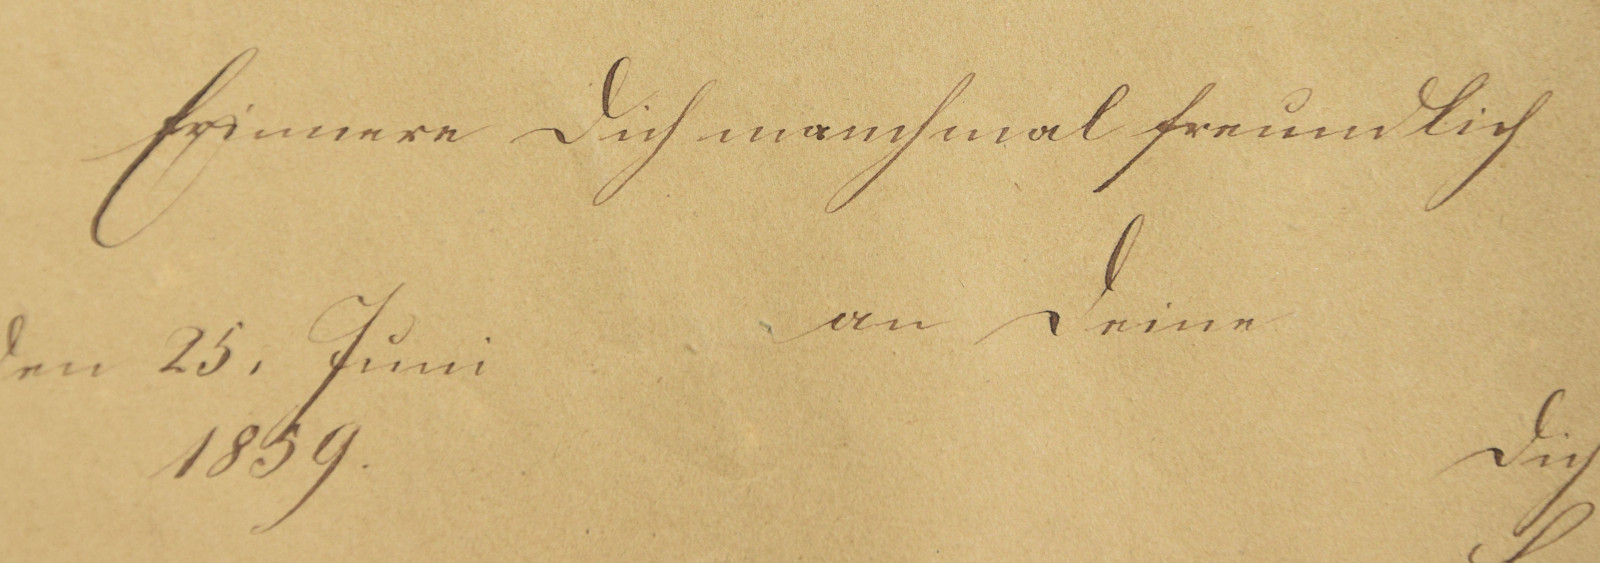 Erinnere Dich manchmal freundlich
an Deine
den 25. Juni
1859.
Dich